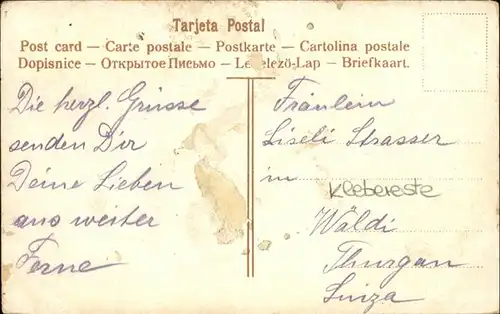 Tarjeta Postal
Post card — Carte postale — Postkarte — Cartolina postale
Dopisnice — Открытое Письмо — Le elezö-Lap — Briefkaart.
Die herzl. Grüsse
senden Dir
Deine Lieben
aus weiter
Ferne
Fräulein
Liseli Strasser
in
Klebereste
Wäldi
Thurgau
Suiza